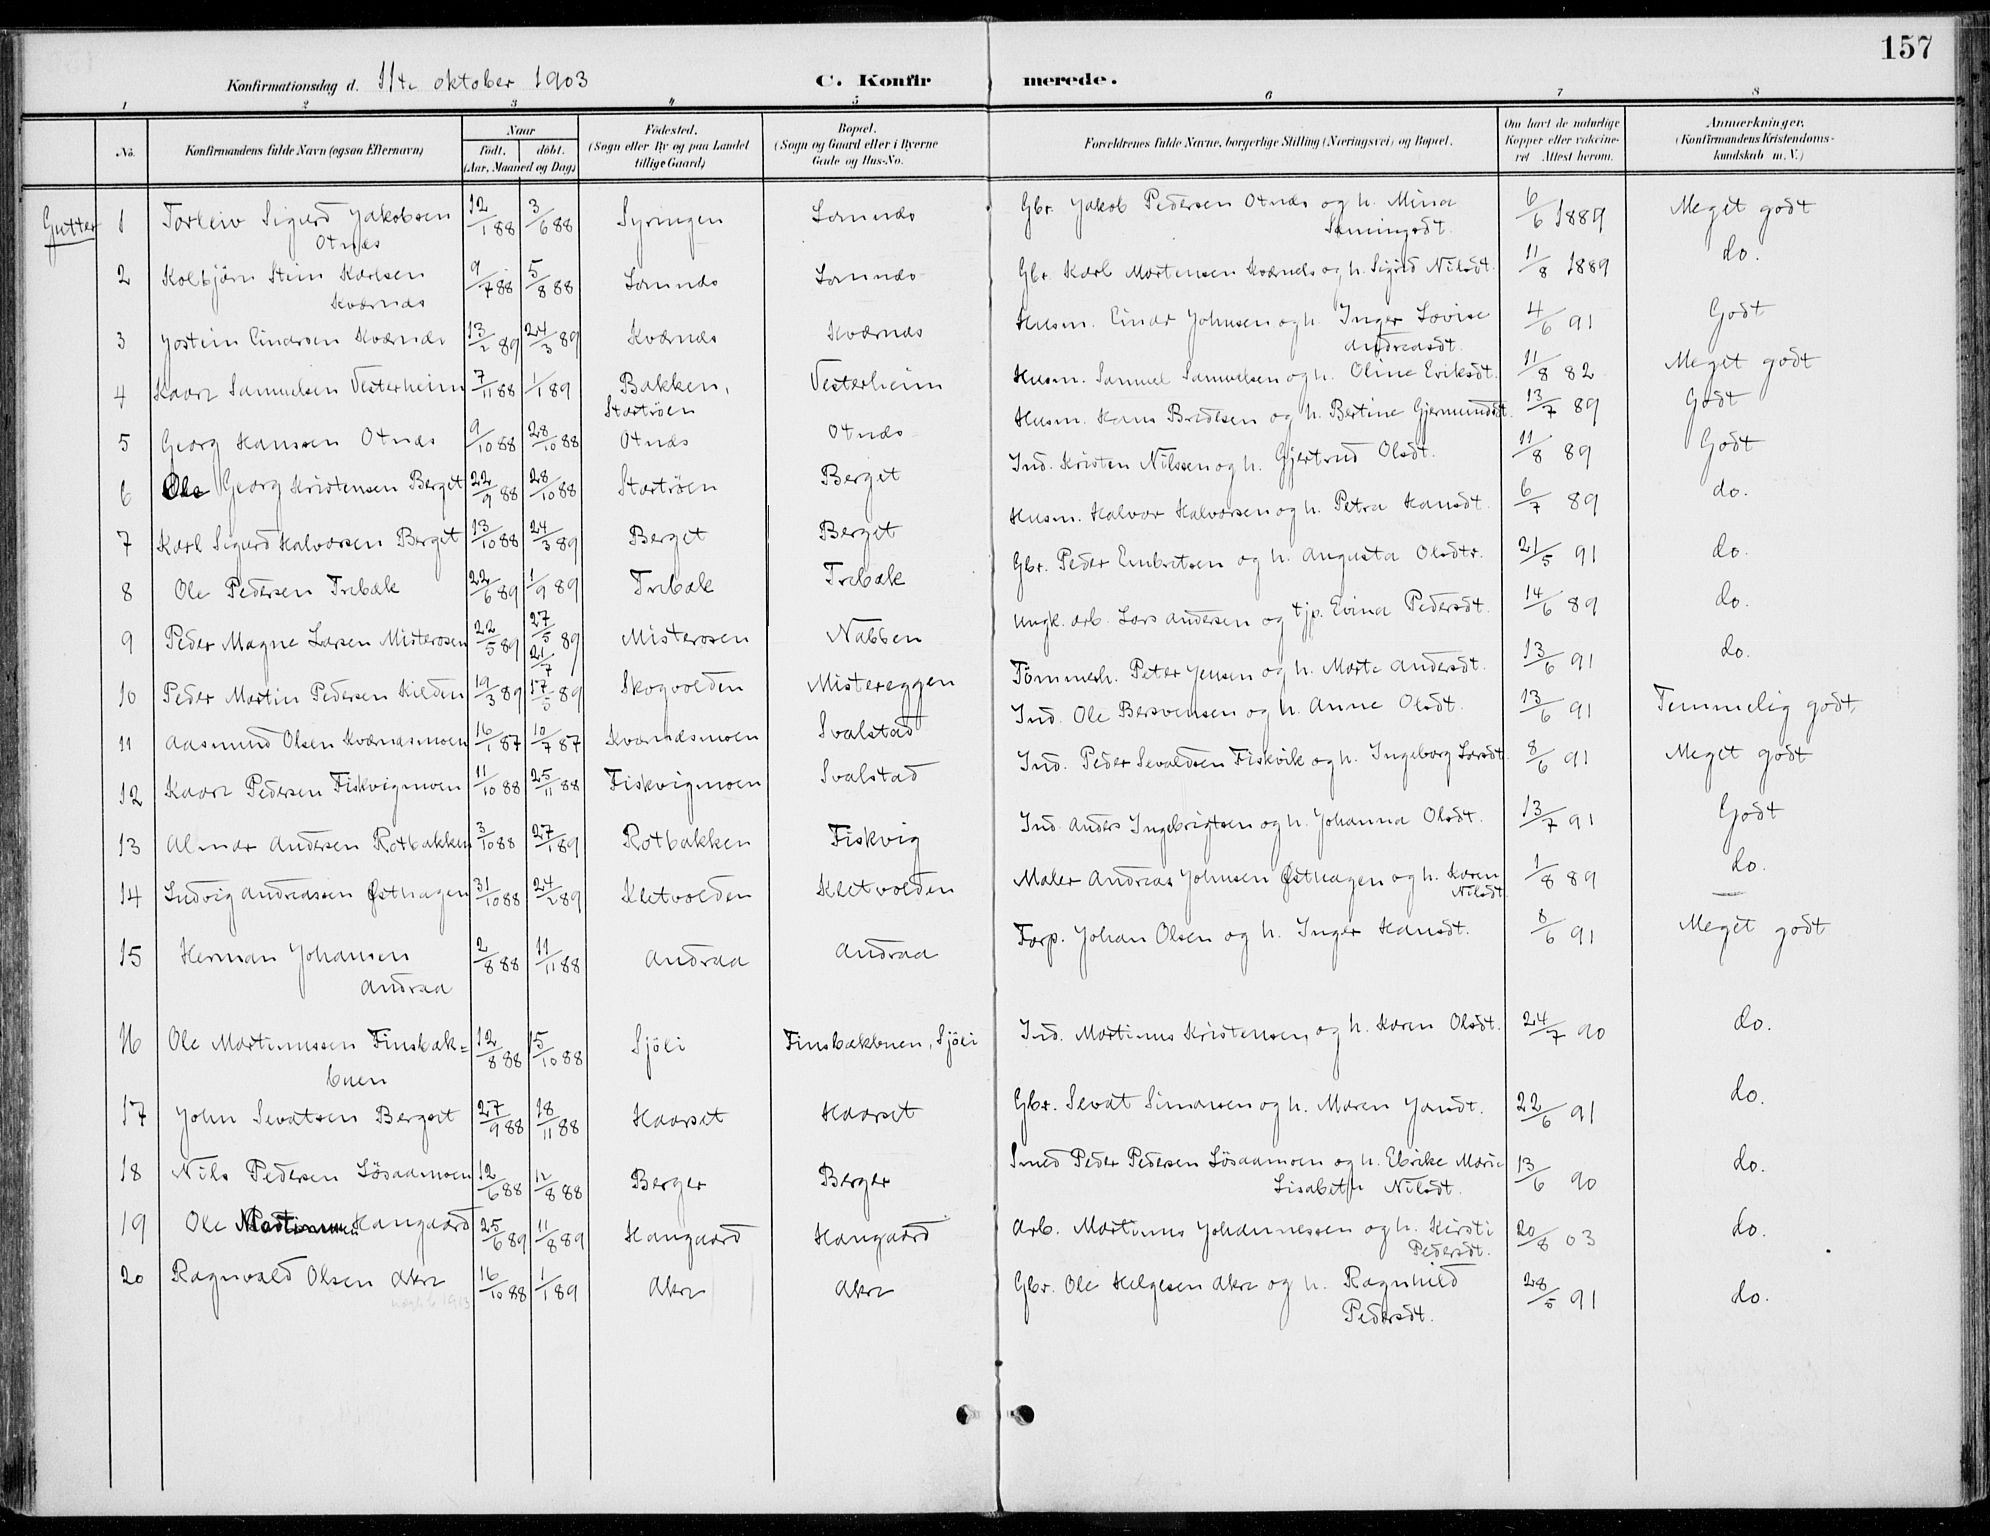 157
Konfirmationsdag d. 11te oktober 1903 C. Konfirmerede.
1 2 3 4 5 6 7 8
No. Konfirmandens fulde Navn (ogsaa Efternavn) Naar født. døbt. (Aar, Maaned og Dag) Fødested. (Sogn eller By og paa Landet tillige Gaard) Bopæl. (Sogn og Gaard eller i Byerne Gade og Hus-No. Forældrenes fulde Navne, borgerlige Stilling (Næringsvei) og Bopæl. Om havt de naturlige Kopper eller vakcineret Attest herom. Anmærkninger. (Konfirmandens Kristendomskundskab m. V.)
Gutter
1 Torleiv Sigurd Jakobsen Otnæs 12/1 88 3/6 88 Syringen Lomnæs Gbr. Jakob Pedersen Otnæs og h. Mina 6/6 1889 Meget godt
2 Kolbjørn Stein Karlsen Kværnæs 9/7 88 5/8 88 Lomnæs Lomnæs Gbr. Karl Martensen Kværnæs og h. Sigrid Nilsdt. 11/8 1889 do.
3 Jostein Einarsen Kværnæs 13/2 89 24/3 89 Kværnæs Kværnæs Husm. Einar Johnsen og h. Inger Lovise Andreasdt. 4/6 91 Godt
4 Kaare Samuelsen Vesterheim 7/11 88 1/1 89 Bakken, Startrøen Vesterheim Husm. Samuel Samuelsen og h. Oline Eriksdt. 11/8 82 Meget godt
5 Georg Hanssen Otnæs 9/10 88 28/10 88 Otnæs Otnæs Husm. Hans Bredesen og h. Bertine Gjermundsdt. 13/7 89 Godt
6 Ole Georg Kristensen Berget 22/9 88 28/10 88 Startrøen Berget Ind. Kristen Nilssen og h. Gjertrud Olsdt. 11/8 89 Godt
7 Karl Sigurd Halvorsen Berget 13/10 88 24/3 89 Berget Berget Husm. Halvor Halvorsen og h. Petra Hansdt. 6/7 89 do.
8 Ole Pedersen Trebæk 22/6 89 1/9 89 Trebæk Trebæk Gbr. Peder Embretsen og h. Augusta Olsdtr. 21/5 91 do.
9 Peder Magne Larsen Misterosen 22/5 89 27/5 21/7 89 Misterosen Nabben Ungk. arb. Lars Andersen og tjp. Evina Pedersdt. 14/6 89 do.
10 Peder Martin Pedersen Kilden 19/3 89 17/5 89 Skogvolden Mistereggen Tømmerh. Peter Jensen og h. Marte Andersdt. 13/6 91 do.
11 Aasmund Olsen Kværnæsmoen 16/1 87 10/7 87 Kværnæsmoen Svalstad Ind. Ole Bersvensen og h. Anne Olsdt. 13/6 91 Temmelig godt.
12 Kaare Pedersen Fiskvigmoen 11/10 88 25/11 88 Fiskvigmoen Svalstad Ind. Peder Sevaldsen Fiskvik og h. Ingeborg Larsdt. 8/6 91 Meget godt
13 Almar Andersen Rotbakken 3/10 88 27/1 89 Rotbakken Fiskvig Ind. Anders Ingebrigtsen og h. Johanna Olsdt. 13/7 91 Godt
14 Ludvig Andreassen Østhagen 31/10 88 24/2 89 Kletvolden Kletvolden Maler Andreas Johnsen Østhagen og h. Karen Nilsdt. 1/8 89 do.
15 Herman Johansen Andraa 2/8 88 11/11 88 Andraa Andraa Forp. Johan Olsen og h. Inger Hansdt. 8/6 91 Meget godt
16 Ole Martinussen Finsbækbuen 12/8 88 15/10 88 Sjøli Finsbækbuen, Sjøli Ind. Martinus Kristensen og h. Karen Olsdt. 24/7 90 do.
17 John Sevatsen Bergset 27/9 88 18/11 88 Haarset Haarset Gbr. Sevat Simansen og h. Maren Jonsdt. 22/6 91 do.
18 Nils Pedersen Løsaamoen 12/6 88 12/8 88 Berger Berger Smed Peder Pedersen Løsaamoen og h. Elrike Marie Lisabeth Nilsdt. 13/6 90 do.
19 Ole Haugaard 25/6 89 11/8 89 Haugaard Haugaard Arb. Martinus Johannessen og h. Kirsti Pedersdt. 20/8 03 do.
20 Ragnvald Olsen Akre 16/10 88 1/1 89 Akre Akre Gbr. Ole Helgesen Akre og h. Ragnhild Pedersdt. 28/5 91 do.